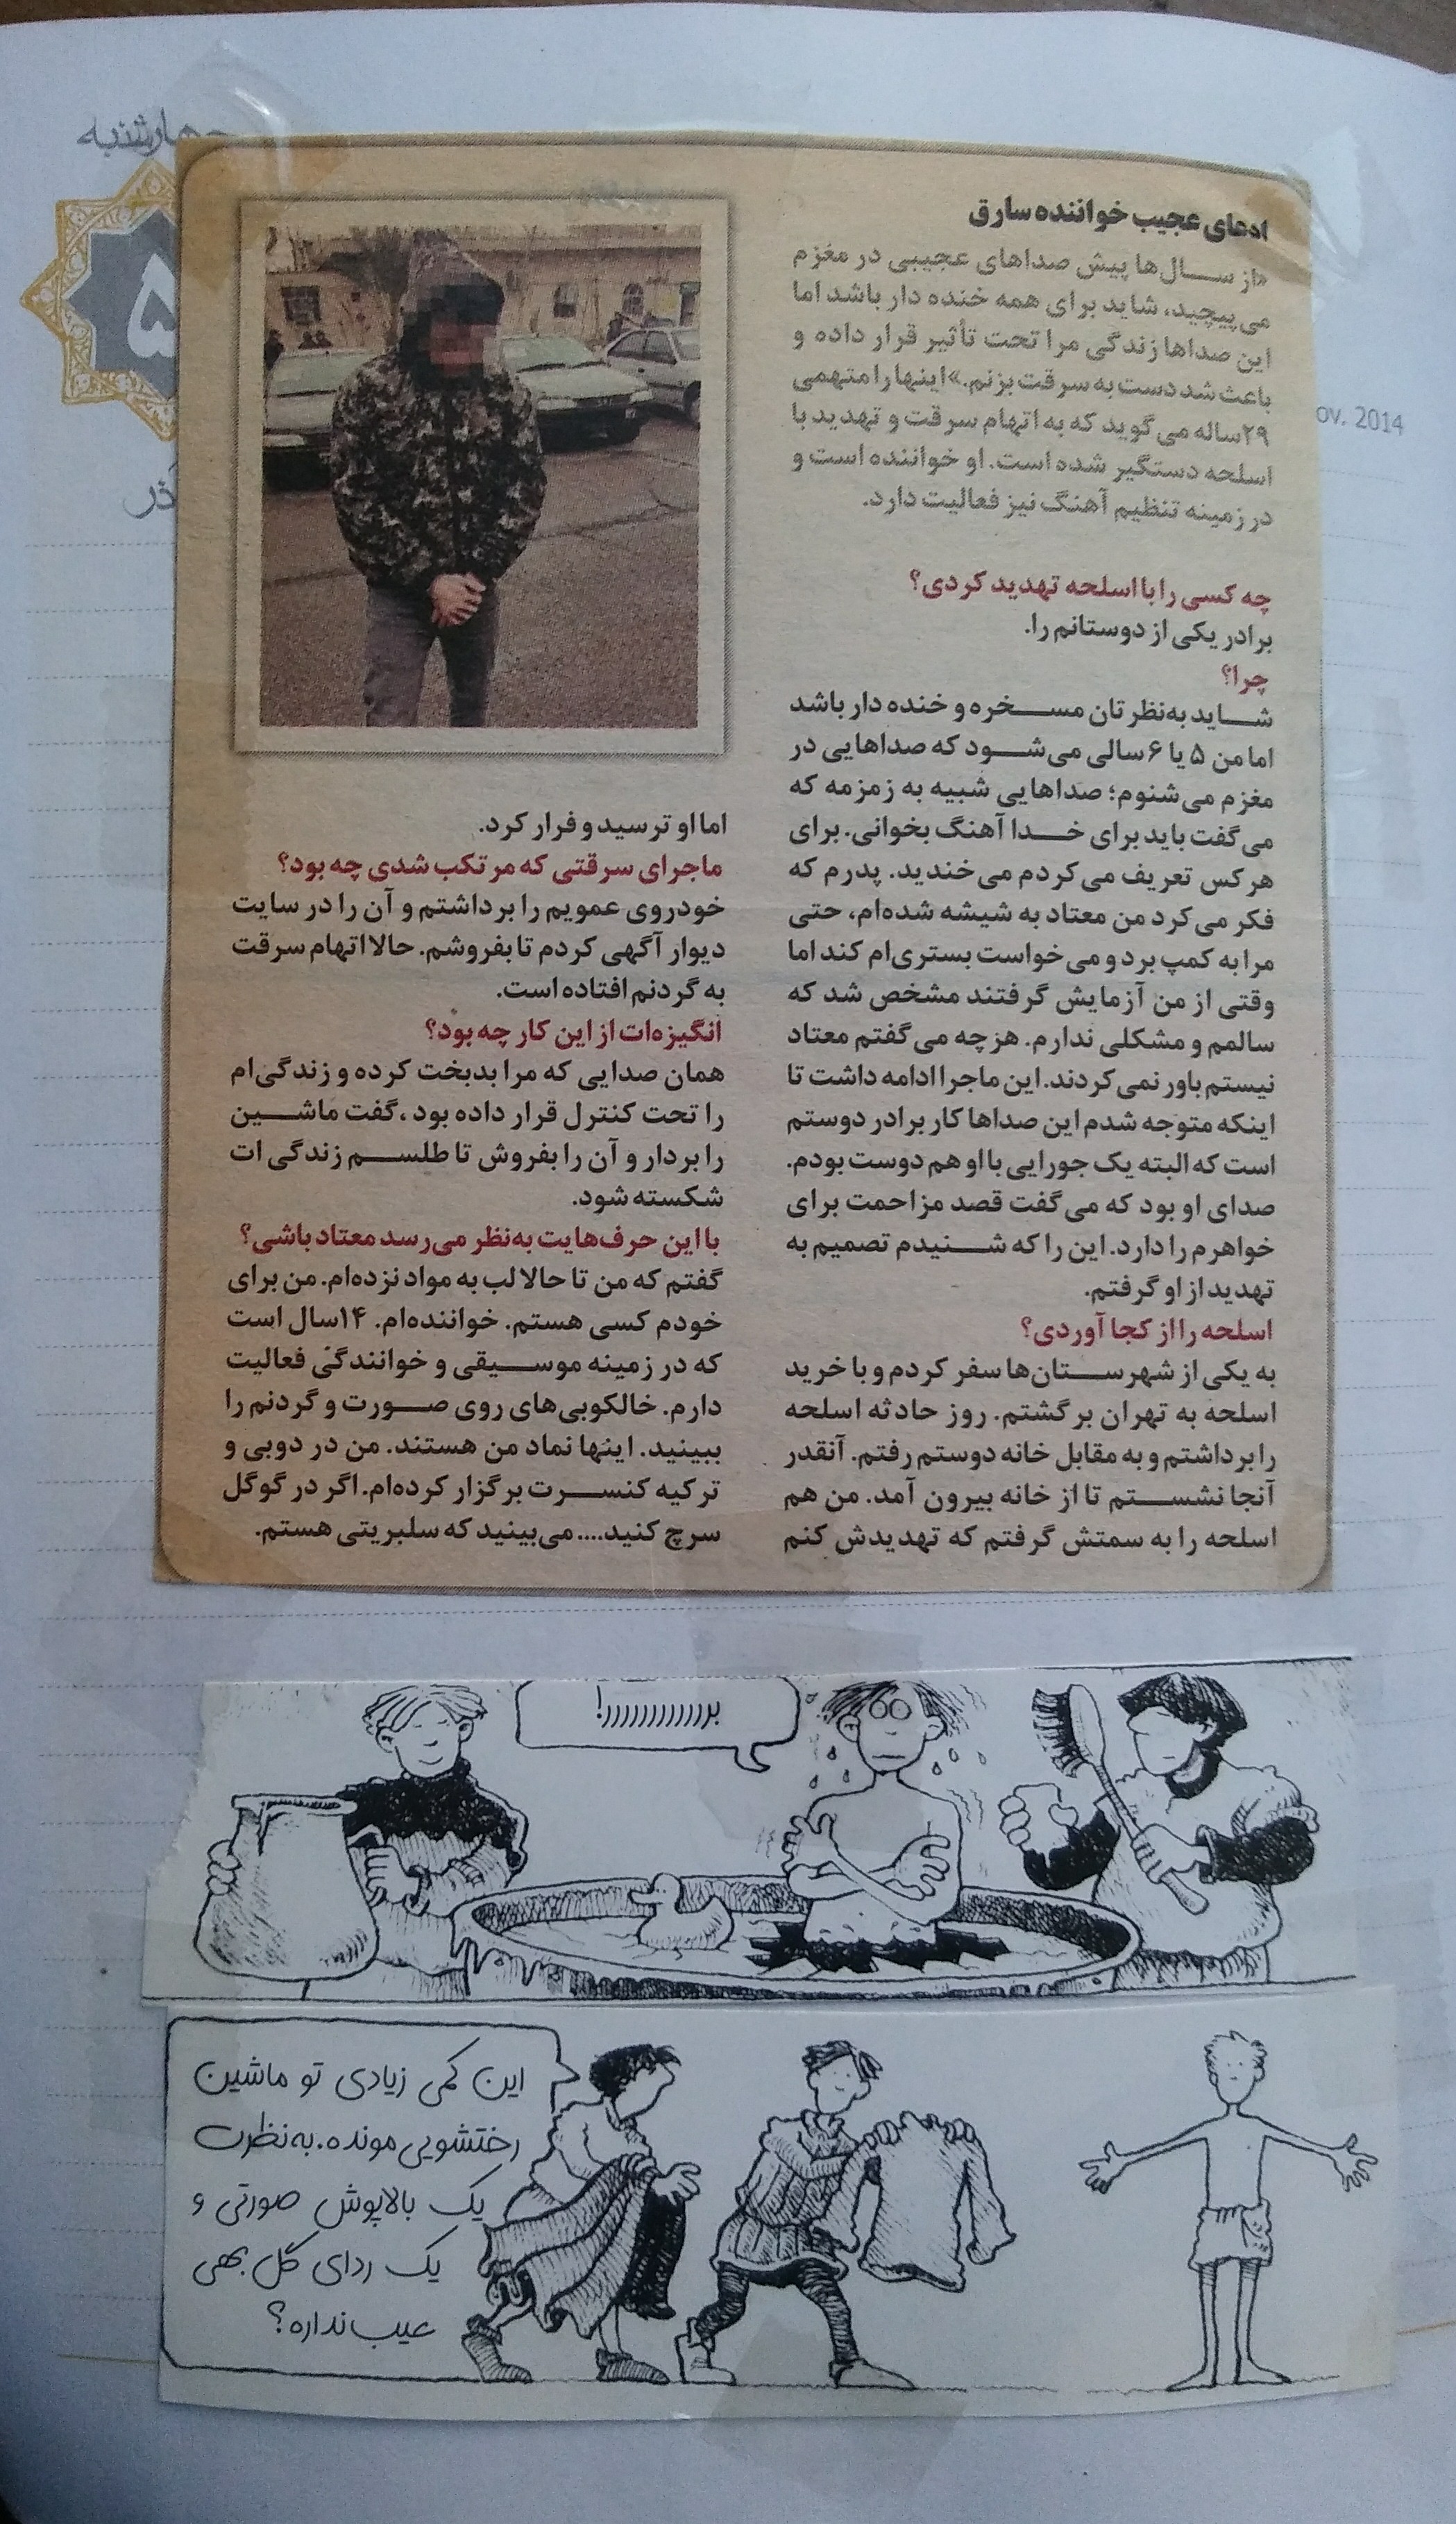 چهارشنبه
۵
ov. 2014
ادعای عجیب خواننده سارق
«از سال‌ها پیش صداهای عجیبی در مغزم
می‌پیچید، شاید برای همه خنده دار باشد اما
این صداها زندگی مرا تحت تأثیر قرار داده و
باعث شد دست به سرقت بزنم.» اینها را متهمی
۲۹ساله می‌گوید که به اتهام سرقت و تهدید با
اسلحه دستگیر شده است. او خواننده است و
در زمینه تنظیم آهنگ نیز فعالیت دارد.
چه کسی را با اسلحه تهدید کردی؟
برادر یکی از دوستانم را.
چرا؟
شاید به‌نظرتان مسخره و خنده دار باشد
اما من ۵ یا ۶ سالی می‌شود که صداهایی در
مغزم می‌شنوم؛ صداهایی شبیه به زمزمه که
می‌گفت باید برای خدا آهنگ بخوانی. برای
هرکس تعریف می‌کردم می‌خندید. پدرم که
فکر می‌کرد من معتاد به شیشه شده‌ام، حتی
مرا به کمپ برد و می‌خواست بستری‌ام کند اما
وقتی از من آزمایش گرفتند مشخص شد که
سالمم و مشکلی ندارم. هرچه می‌گفتم معتاد
نیستم باور نمی‌کردند. این ماجرا ادامه داشت تا
اینکه متوجه شدم این صداها کار برادر دوستم
است که البته یک جورایی با او هم دوست بودم.
صدای او بود که می‌گفت قصد مزاحمت برای
خواهرم را دارد. این را که شنیدم تصمیم به
تهدید از او گرفتم.
اسلحه را از کجا آوردی؟
به یکی از شهرستان‌ها سفر کردم و با خرید
اسلحه به تهران برگشتم. روز حادثه اسلحه
را برداشتم و به مقابل خانه دوستم رفتم. آنقدر
آنجا نشستم تا از خانه بیرون آمد. من هم
اسلحه را به سمتش گرفتم که تهدیدش کنم
اما او ترسید و فرار کرد.
ماجرای سرقتی که مرتکب شدی چه بود؟
خودروی عمویم را برداشتم و آن را در سایت
دیوار آگهی کردم تا بفروشم. حالا اتهام سرقت
به گردنم افتاده است.
انگیزه‌ات از این کار چه بود؟
همان صدایی که مرا بدبخت کرده و زندگی‌ام
را تحت کنترل قرار داده بود، گفت ماشین
را بردار و آن را بفروش تا طلسم زندگی ات
شکسته شود.
با این حرف‌هایت به‌نظر می‌رسد معتاد باشی؟
گفتم که من تا حالا لب به مواد نزده‌ام. من برای
خودم کسی هستم. خواننده‌ام. ۱۴سال است
که در زمینه موسیقی و خوانندگی فعالیت
دارم. خالکوبی‌های روی صورت و گردنم را
ببینید. اینها نماد من هستند. من در دوبی و
ترکیه کنسرت برگزار کرده‌ام. اگر در گوگل
سرچ کنید.... می‌بینید که سلبریتی هستم.
بررررررررررر!
این کمی زیادی تو ماشین
رختشویی مونده. به‌نظرت
یک بالاپوش صورتی و
یک ردای گل بهی
عیب نداره؟